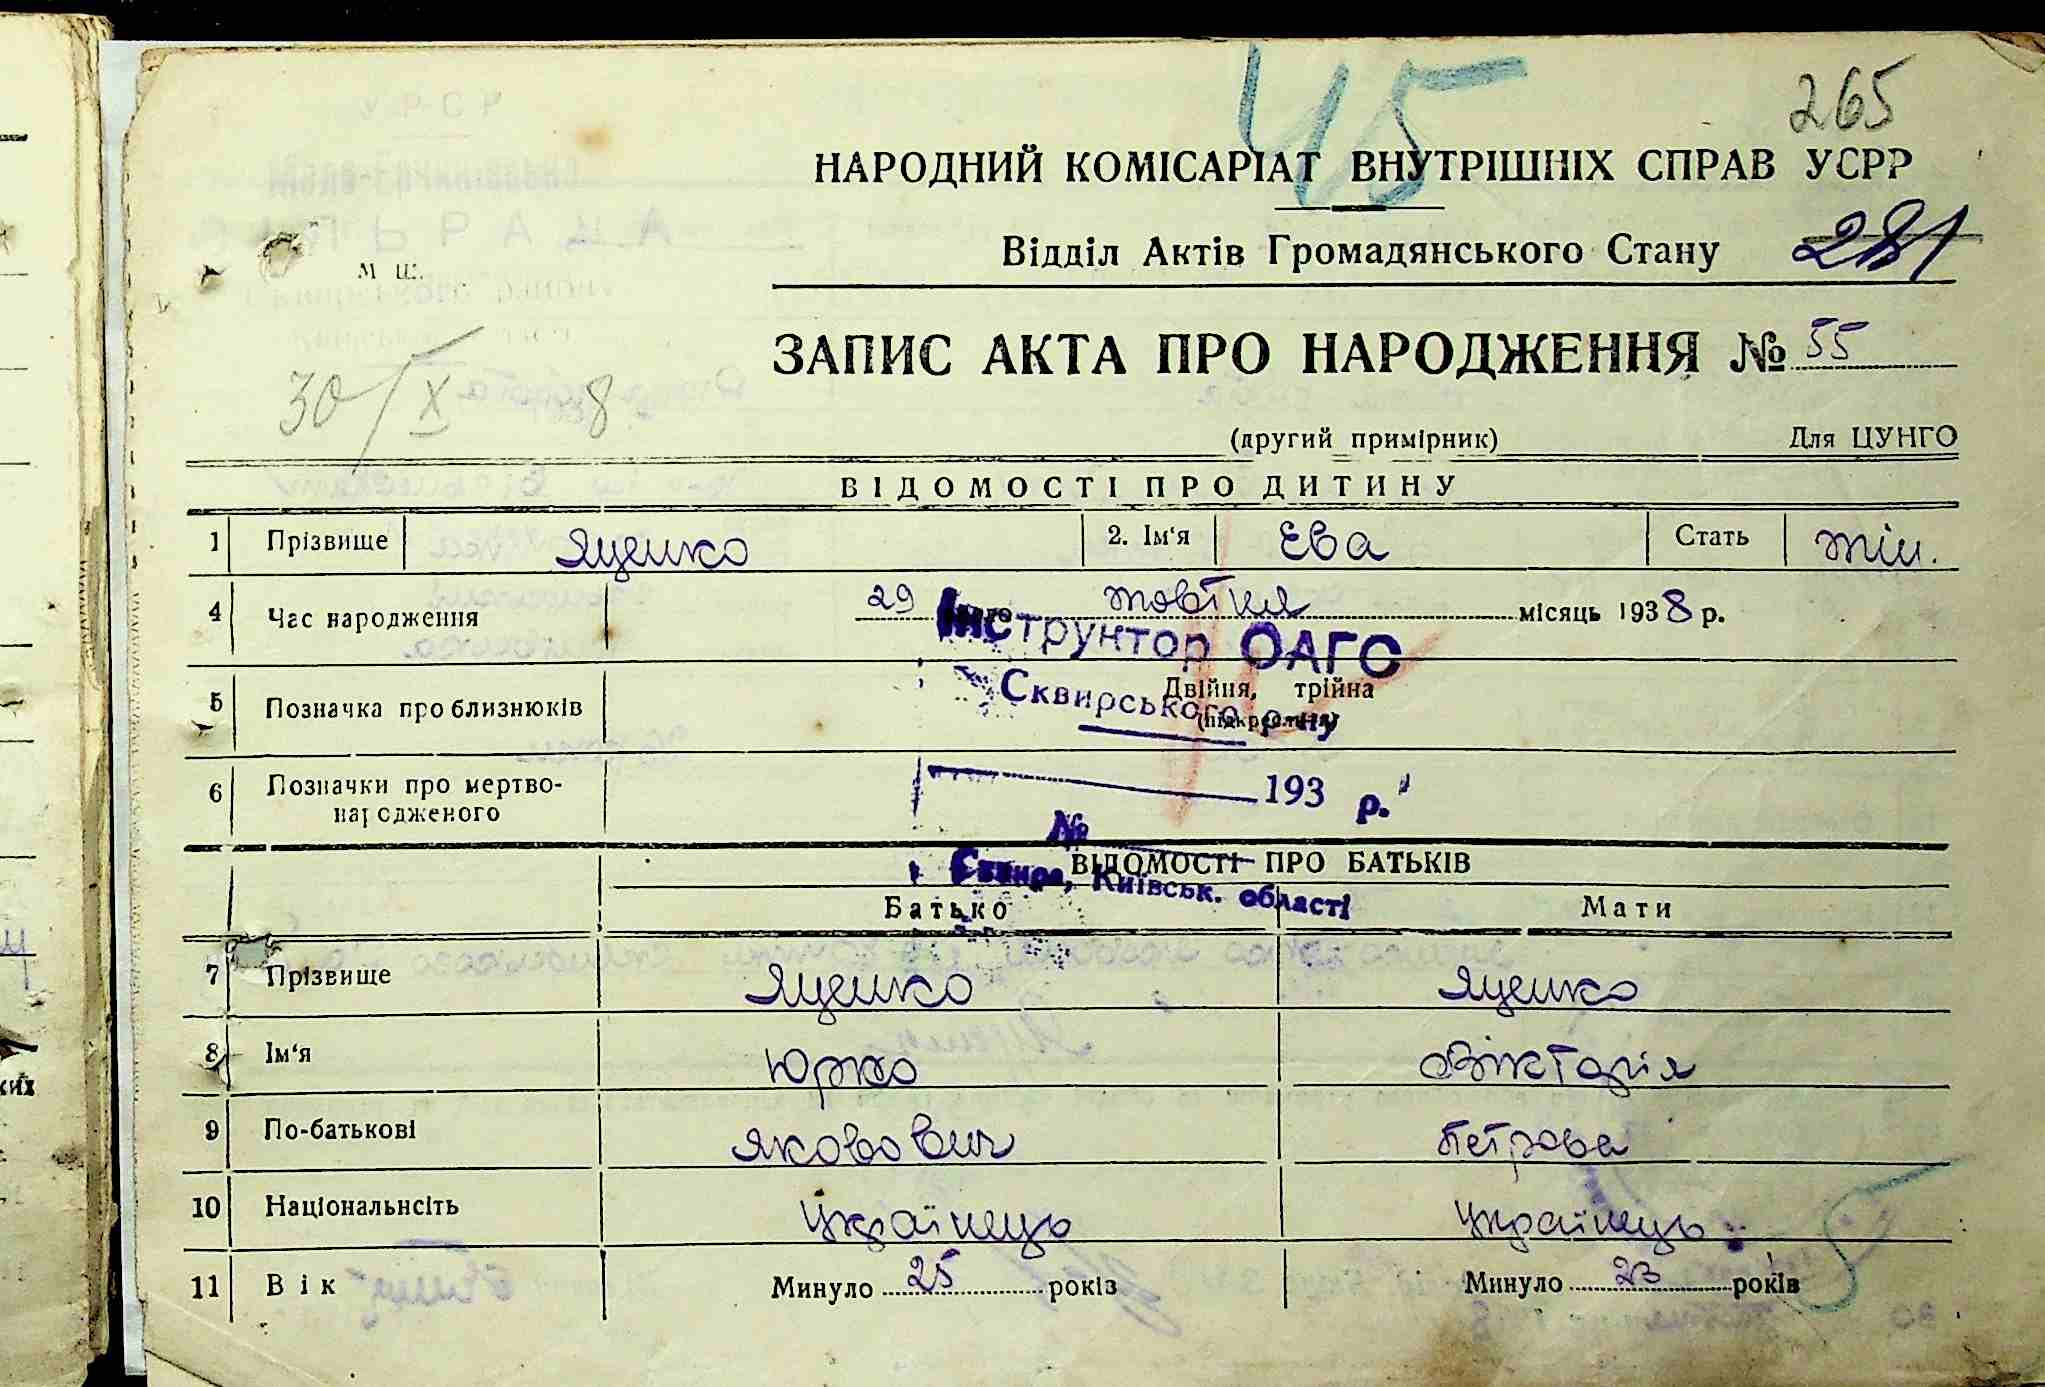 45
265
НАРОДНИЙ КОМІСАРІАТ ВНУТРІШНІХ СПРАВ УСРР
Відділ Актів Громадянського Стану 281
м п.
ЗАПИС АКТА ПРО НАРОДЖЕННЯ № 55
30/X 8
(другий примірник) Для ЦУНГО
ВІДОМОСТІ ПРО ДИТИНУ
1 Прізвище Яценко 2. Ім'я Ева Стать жін.
4 Час народження 29 жовтня місяць 1938 р.
Інструктор ОАГС
5 Позначка про близнюків Двійня, трійна
Сквирського р-ну
(підкреслити)
6 Позначки про мертво-
народженого
193 р.
№
ВІДОМОСТІ ПРО БАТЬКІВ
Сквира, Київськ. області
Батько Мати
7 Прізвище Яценко Яценко
8 Ім'я Юрко Вікторія
9 По-батькові Якович Петрова
10 Національнсіть Українець Українець
11 Вік Минуло 25 років Минуло 23 років